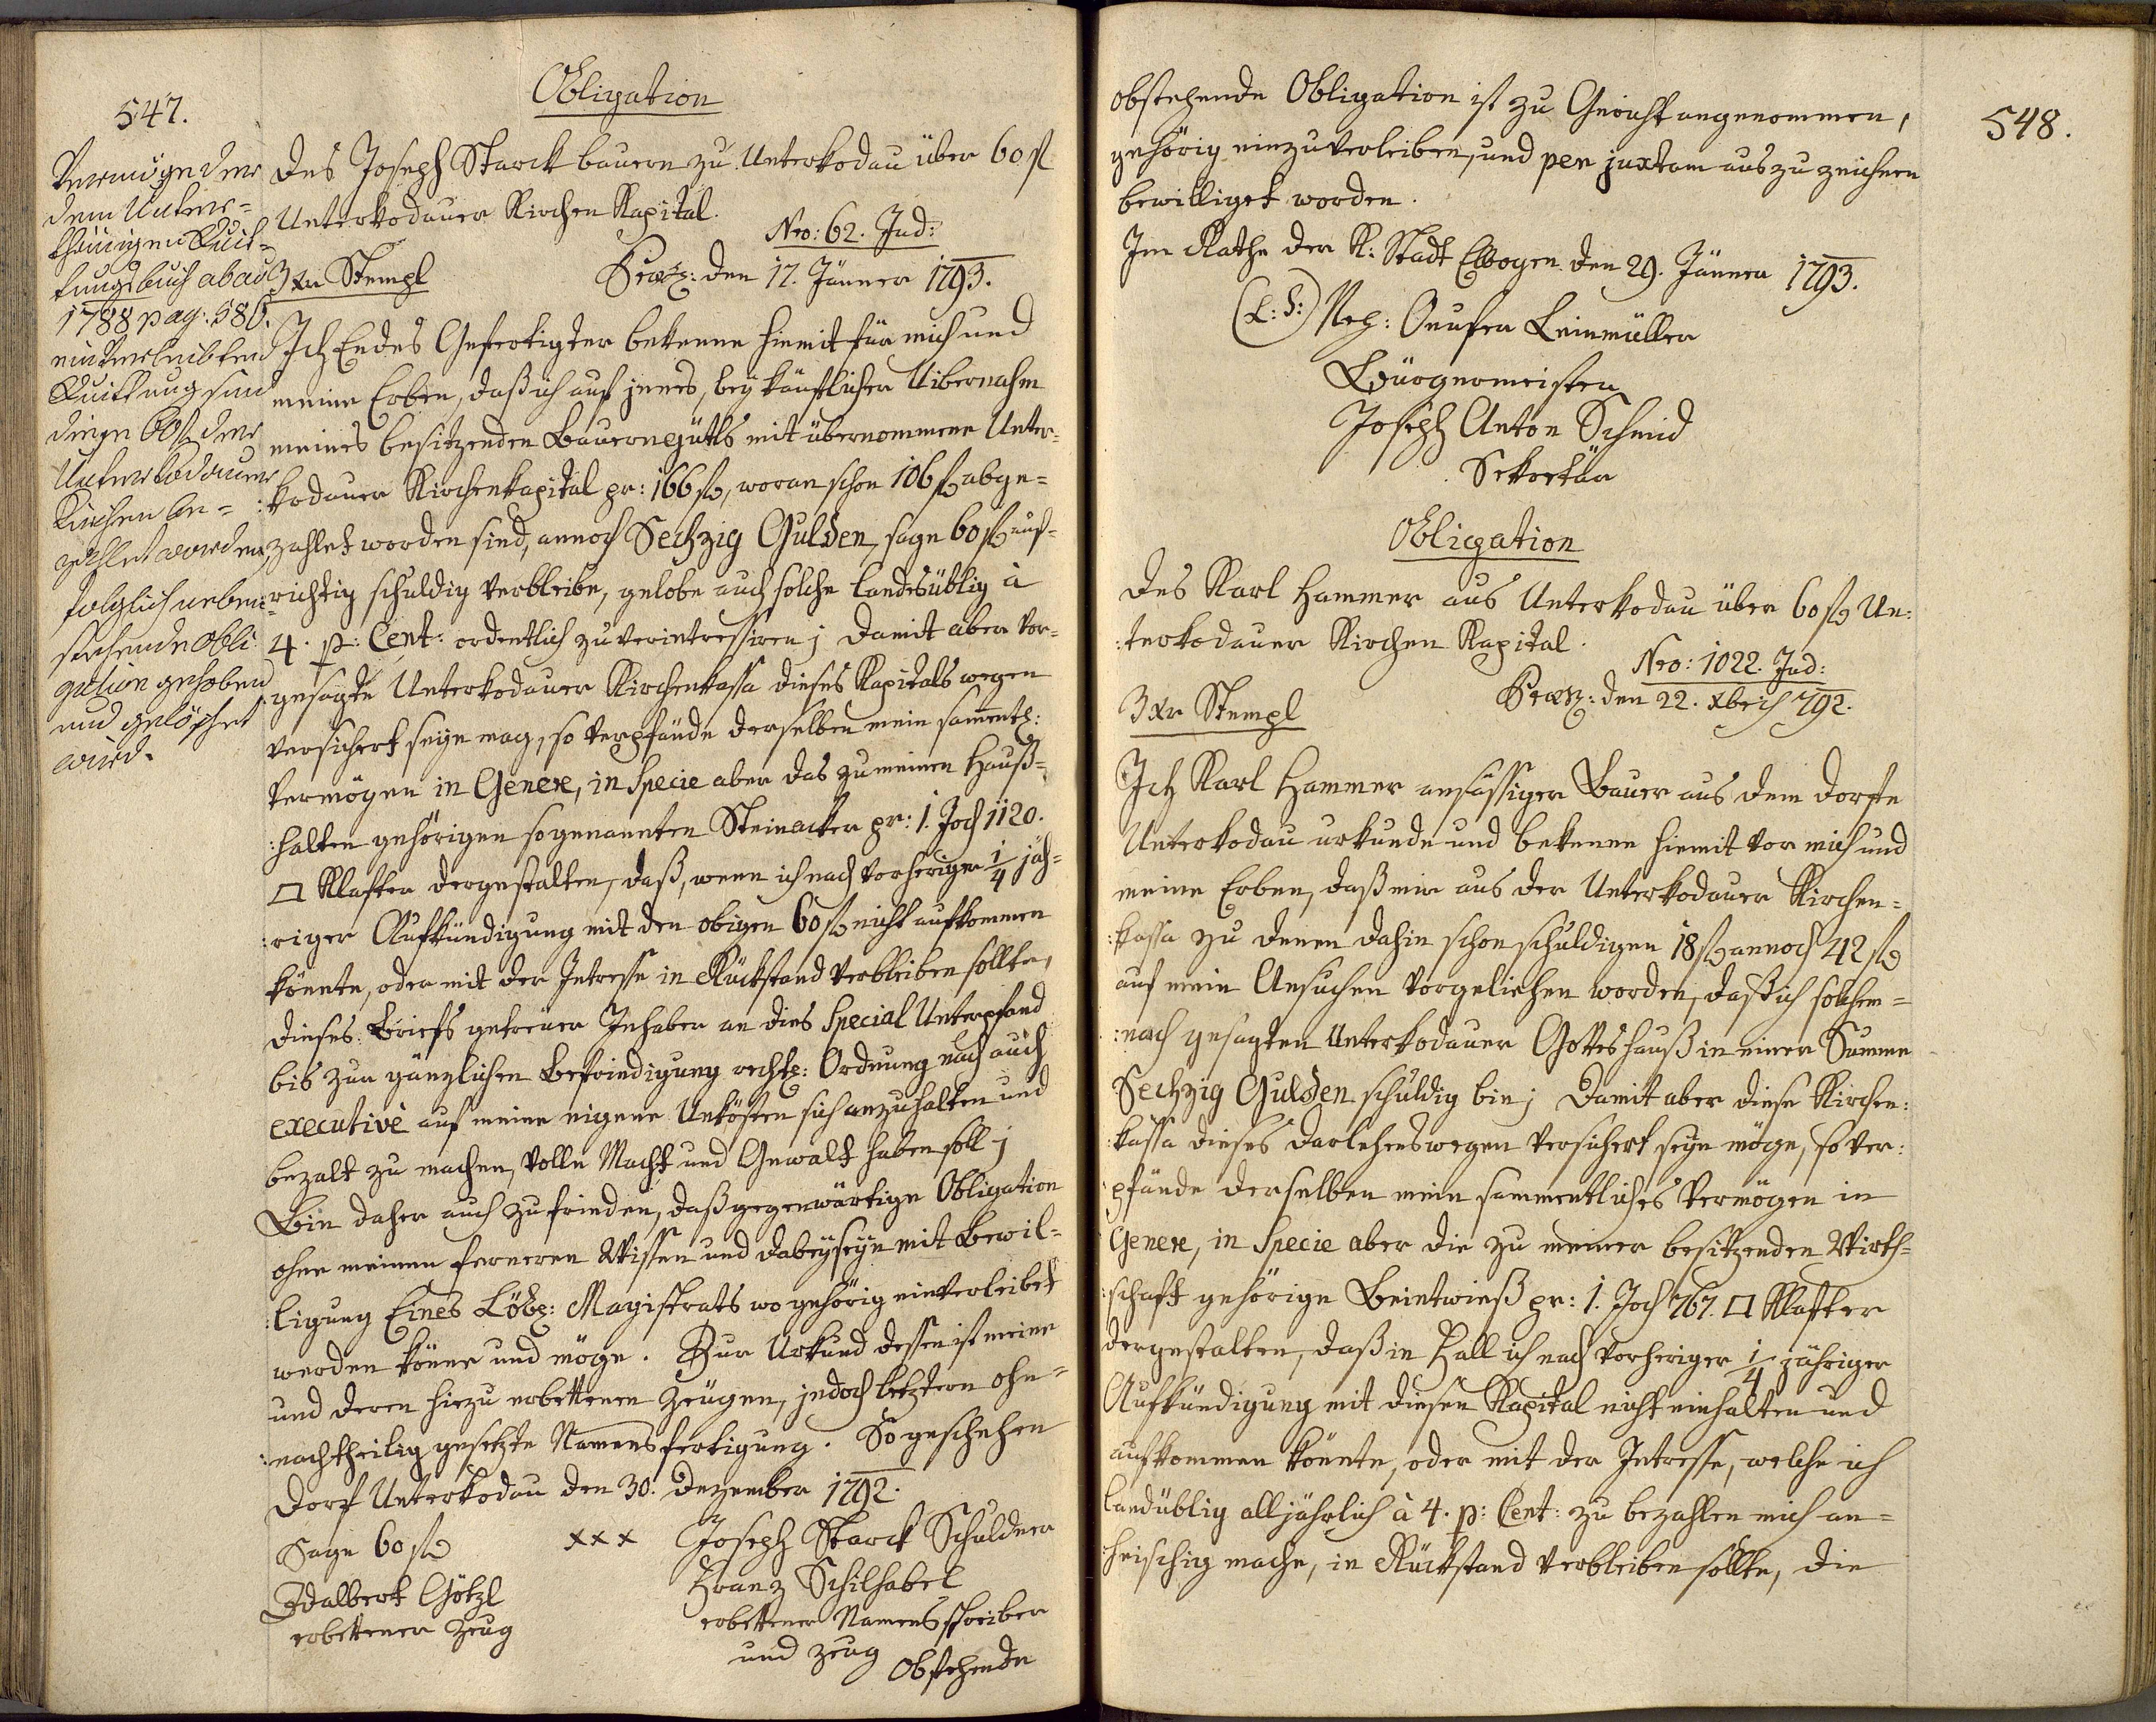 547.
Obligation
Vermög der
dem Unter-
thänigen Quit-
tungsbuch ab ao
1788 pag: 580.
einverleibten
Quittung sind
diese 60 fl der
Unterkodauer
Kirchen be-
zahlet worden
folglich neben-
stehende Obli
gation gehoben
und gelöschet
wird.
Des Joseph Starck bauern zu Unterkodau über 60 fl
Unterkodauer Kirchen Kapital.
Nro: 62. Jud:
3 xr Stempl
Praes: den 17. Jänner 1793.
Ich Endes Gefertigter bekenne hiemit für mich und
meine Erben, daß ich auf jenes, bey käuflicher Uibernahm
meines besitzenden Bauernguttls mit übernommene Unter-
:kodauer Kirchenkapital pr: 166 fl, woran schon 106 fl abge-
zahlet worden sind, annoch Sechzig Gulden, sage 60 fl auf-
richtig schuldig verbleibe, gelobe auch solche landesüblig à
4. p: Cent: ordentlich zu verintressiren; Damit aber vor-
:gesagte Unterkodauer Kirchenkassa dieses Kapitals wegen
versichert seyn mag, so verpfände derselben mein samentl:
Vermögen in Genere, in Specie aber das zu meinen Hauß-
:halten gehörigen sogenannten Steinacker pr: 1. Joch 1120.
□ Klafter dergestalten, daß, wenn ich nach vorheriger 1/4 jäh-
:riger Aufkündigung mit den obigen 60 fl nicht aufkommen
könnte, oder mit der Intresse in Rückstand verbleiben sollte,
dieses Briefs getreuer Inhaber an dies Special Unterpfand
bis zur gänzlichen Befriedigung rechts: Ordnung nach auch
executivè auf meine eigene Unkösten sich anzuhalten und
bezalt zu machen, volle Macht und Gewalt haben soll;
Bin daher auch zufrieden, daß gegenwärtige Obligation
ohne meinem ferneren Wissen und dabeyseyn mit Bewil-
:ligung Eines Löbl: Magistrats wo gehörig einverleibet
werden könne und möge. Zur Urkund dessen ist meine
und deren hiezu erbettenen Zeugen, jedoch letztern ohn-
:nachtheilig gesetzte Namensfertigung. So geschehen
Dorf Unterkodau den 30. Dezember 1792.
Sage 60 fl
xxx Joseph Starck Schuldner
Adalbert Götzl
erbettener Zeug
Franz Schilhabel
erbettener Namensschreiber
und Zeug
Obstehende
548.
obstehende Obligation ist zu Gericht angenommen,
gehörig einzuverleiben, und per juxtam auszuzeichnen
bewilliget worden.
Im Rathe der K: Stadt Elbogen den 29. Jänner 1793.
(L: S:) Anton Leinmüller
Bürgermeister
Joseph Anton Schmid
Sekretär
Obligation
Des Karl Hammer aus Unterkodau über 60 fl Un:
:terkodauer Kirchen Kapital.
Nro: 1022. Jud:
3 xr Stempl
Praes: den 22. Xbris 792.
Ich Karl Hammer ansässiger Bauer aus dem Dorfe
Unterkodau urkunde und bekenne hiemit vor mich und
meine Erben, daß mir aus der Unterkodauer Kirchen-
:kassa zu denen dahin schon schuldigen 18 fl annoch 42 fl
auf mein Ansuchen vorgeliehen worden, daß ich solchem-
:nach gesagten Unterkodauer Gotteshauß in einer Summe
Sechzig Gulden schuldig bin; Damit aber diese Kirchen:
:kassa dieses Darlehenswegen versichert seyn möge, so ver:
pfände derselben mein sammentliches Vermögen in
Genere, in Specie aber die zu meiner besitzenden Wirth-
:schaft gehörige Beintwieß pr: 1. Joch 767. □ Klafter
dergestalten, daß in Fall ich nach vorheriger 1/4 jähriger
Aufkündigung mit diesen Kapital nicht einhalten und
aufkommen könnte, oder mit der Intresse, welche ich
landüblig alljährlich à 4. p: Cent: zu bezahlen mich an-
heischig mache, in Rückstand verbleiben sollte, die